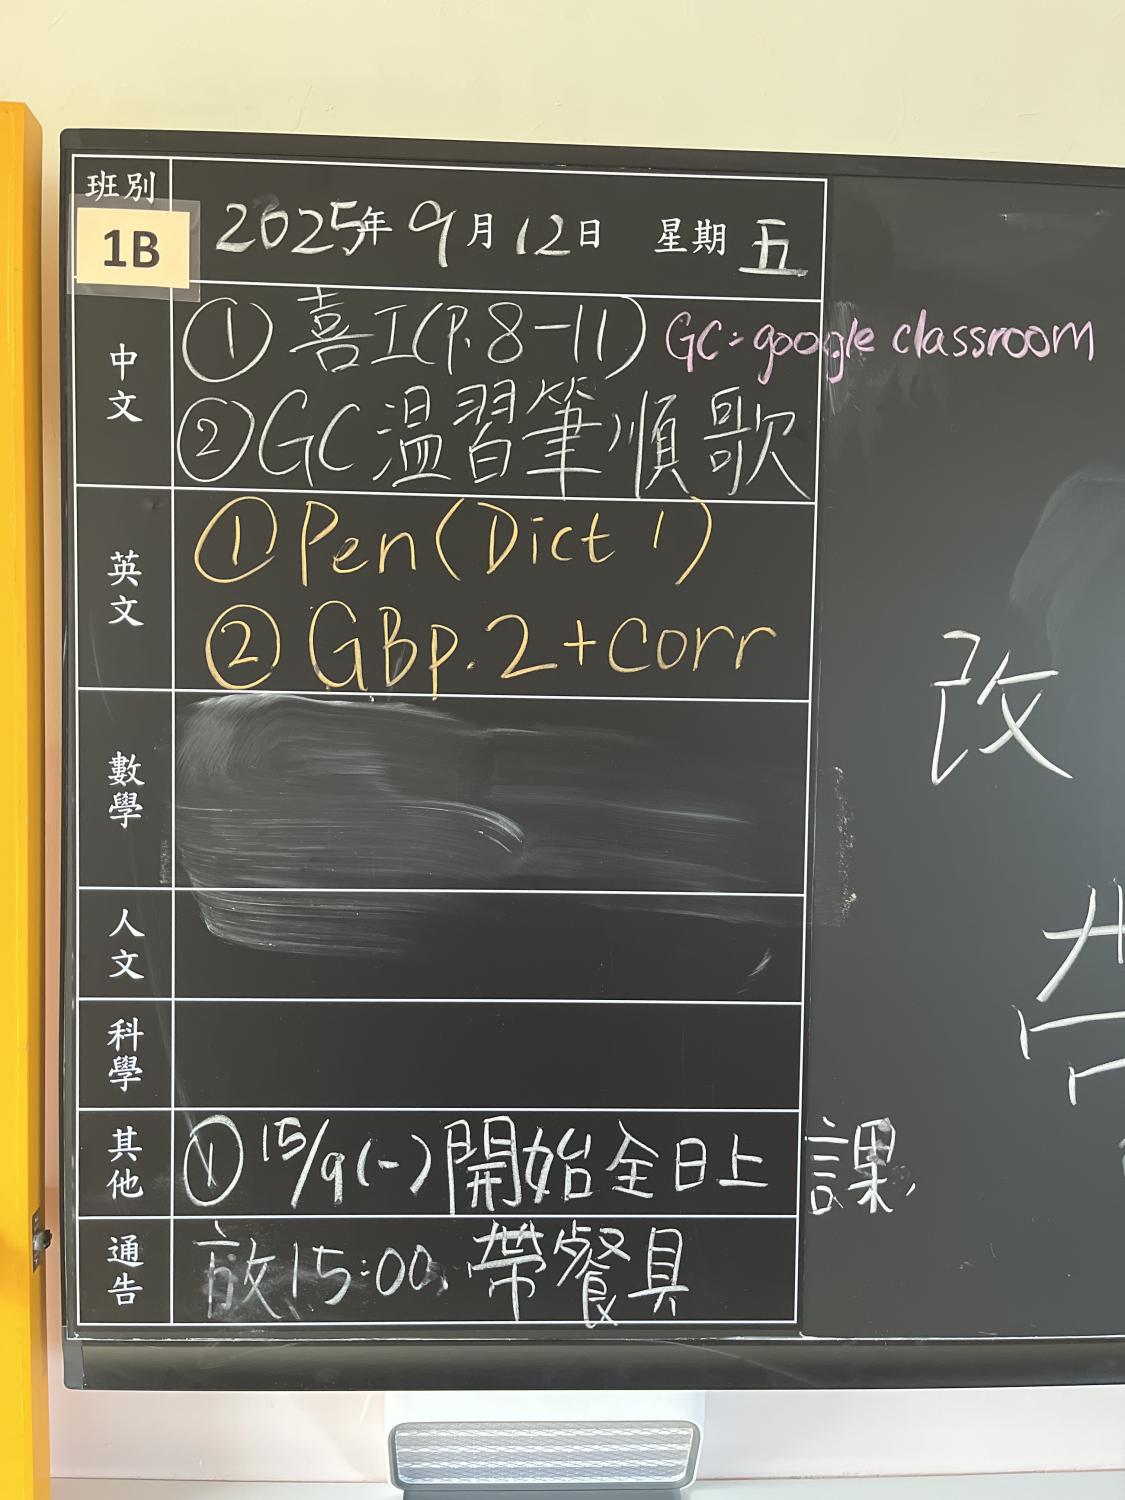 班別
1B
2025年9月12日 星期五
中文
①喜工(P.8-11) GC=google classroom
②GC溫習筆順歌
英文
①Pen(Dict 1)
②GBp.2+corr
數學
人文
科學
其他
①15/9(一)開始全日上課,
通告
放15:00, 帶餐具
改